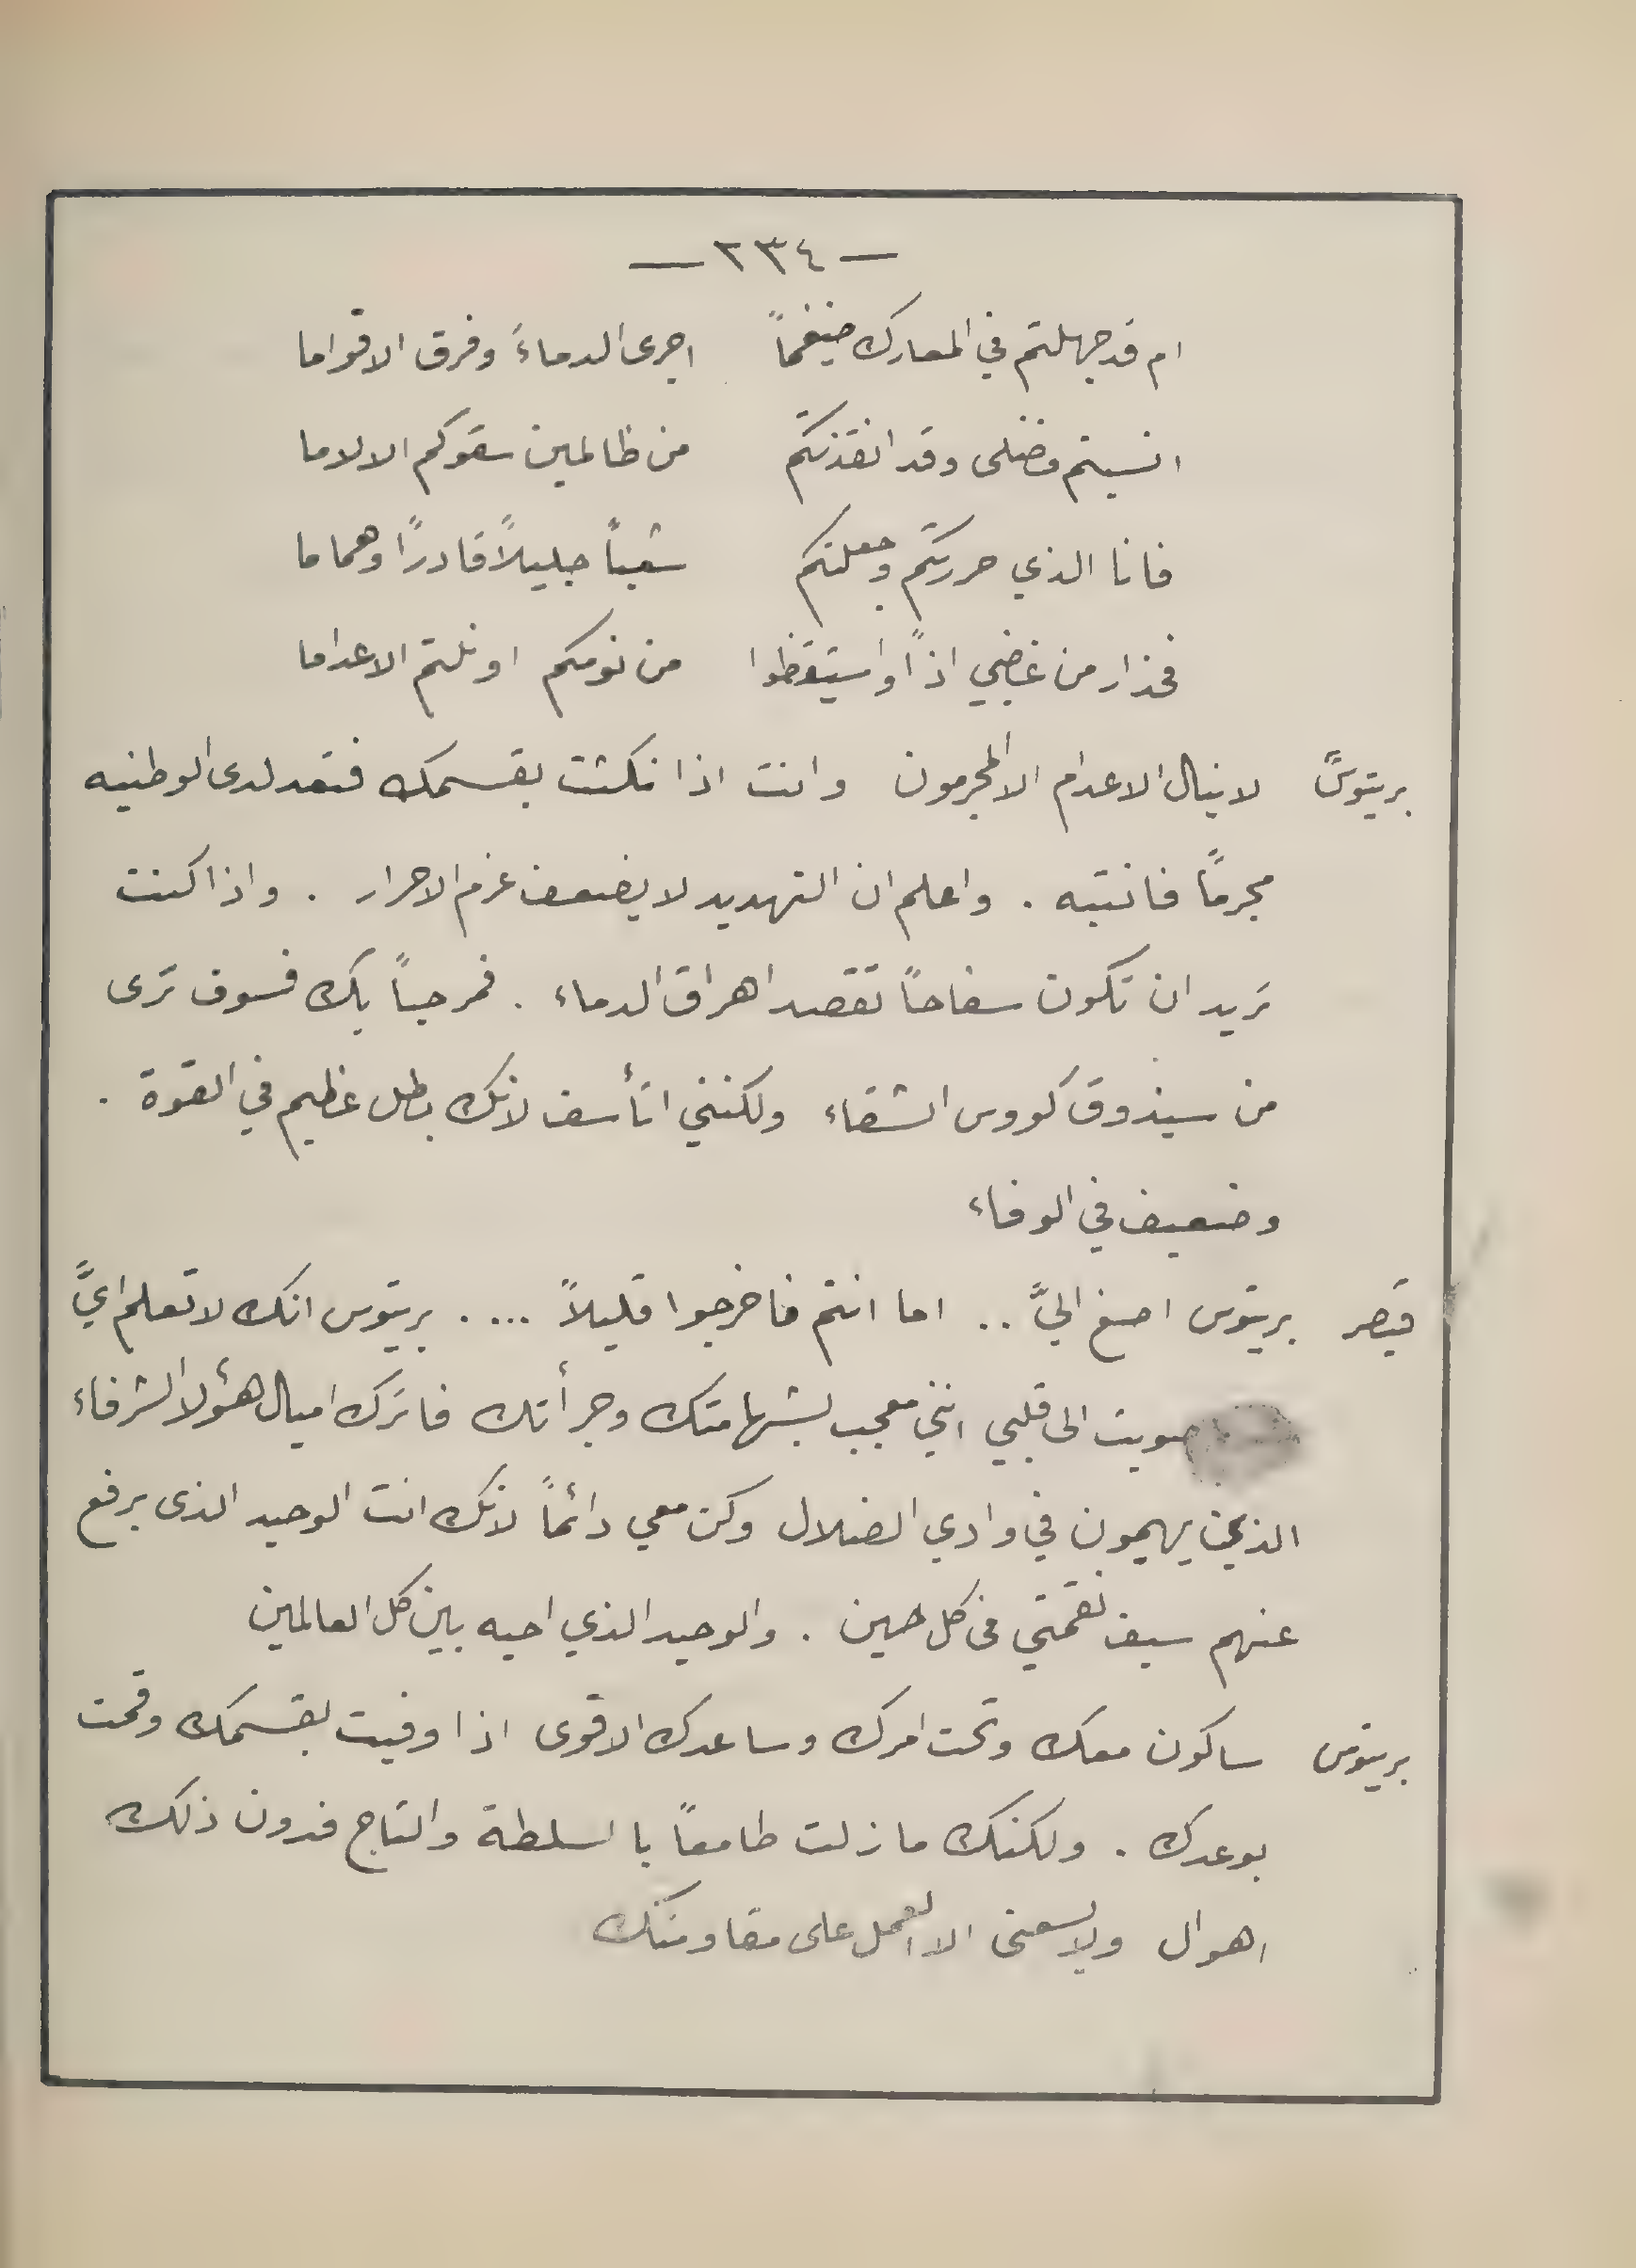 — ٢٣٤ —
ام قد جهلتم في المعارك ضيغماً اجرى الدماءَ وفرق الاقواما
انسيتم فضلى وقد انقذتكم من ظالمين سقوكم الالاما
فانا الذي حررتكم وجعلتكم شعباً جليلاً قادراً وهماما
فحذار من غضبي اذاً واستيقظوا من نومكم او نلتم الاعداما
بريتوس لا ينال الاعدام الا المجرمون وانت اذا نكثت بقسمك فتعد لدى الوطنيه
مجرماً فانتبه . واعلم ان التهديد لا يضعف عزم الاحرار . واذا كنت
تريد ان تكون سفاحاً تقصد اهراق الدماء . فمرحباً بك فسوف ترى
من سيذوق كووس الشقاء ولكنني اتأسف لانك بطل عظيم في القوة .
وضعيف في الوفاء
قيصر بريتوس اصغ اليَّ .. اما انتم فاخرجوا قليلاً .... بريتوس انك لا تعلم ايَّ
صويت الى قلبي انني معجب بشهامتك وجرأتك فاترك اميال هئولا الشرفاء
الذين يهيمون في وادي الضلال وكن معي دائماً لانك انت الوحيد الذى يرفع
عنهم سيف نقمتي فى كل حين . والوحيد الذي احبه بين كل العالمين
بريتوس ساكون معك وتحت امرك وساعدك الاقوى اذا وفيت بقسمك وقمت
بوعدك . ولكنك ما زلت طامعاً بالسلطة والتاج فدون ذلك
اهوال ولا يسعنى الا العمل على مقاومتك